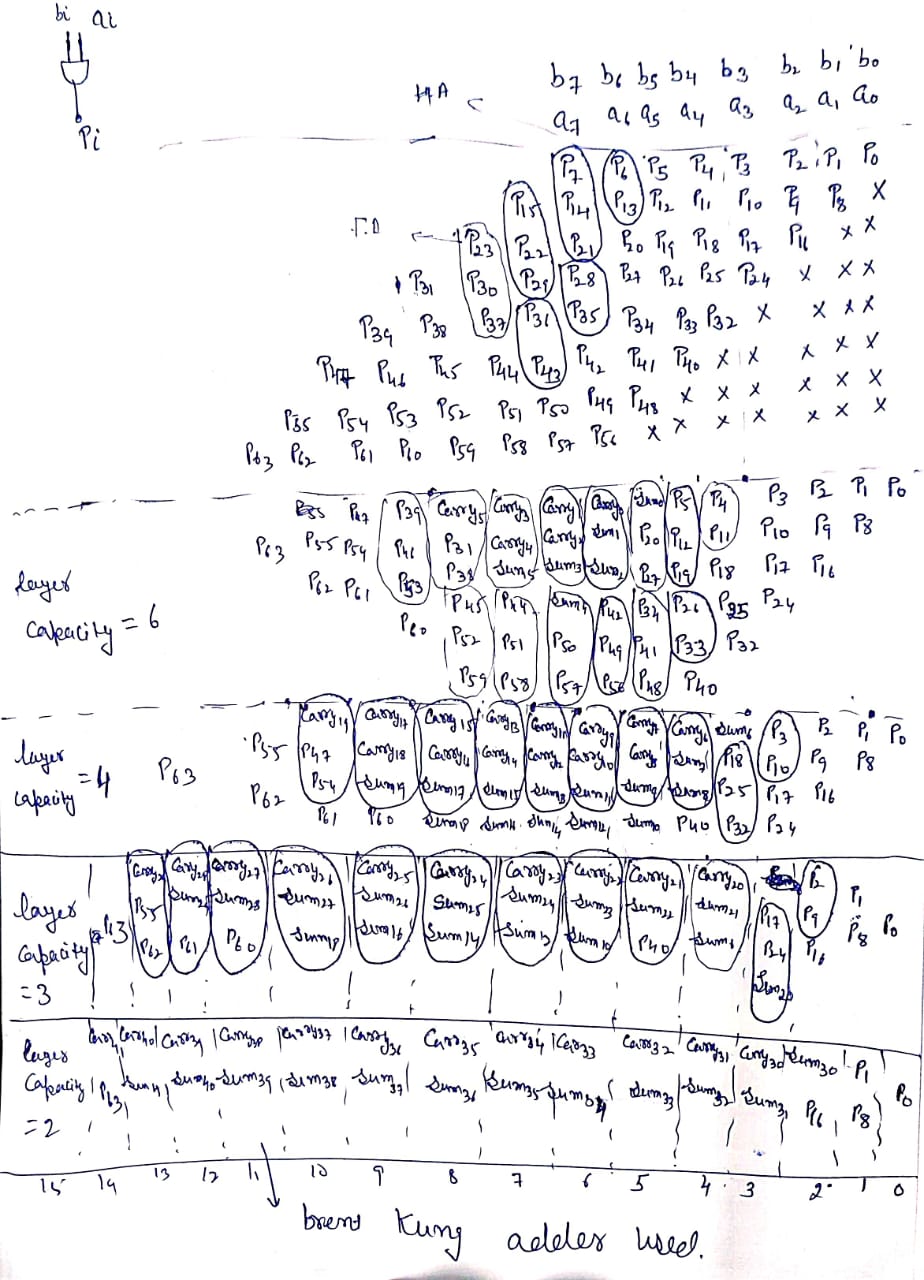 bi ai
Pi
HA
b7 b6 b5 b4 b3 b2 b1 b0
a7 a6 a5 a4 a3 a2 a1 a0
P7 P6 P5 P4 P3 P2 P1 P0
P15 P14 P13 P12 P11 P10 P9 P8 X
P23 P22 P21 P20 P19 P18 P17 P16 X X
P31 P30 P29 P28 P27 P26 P25 P24 X X X
P39 P38 P37 P36 P35 P34 P33 P32 X X X X
P47 P46 P45 P44 P43 P42 P41 P40 X X X X X
P55 P54 P53 P52 P51 P50 P49 P48 X X X X X X
P63 P62 P61 P60 P59 P58 P57 P56 X X X X X X X
layer
capacity = 6
P47 P39 Carry5 Carry3 Carry1 Carry0 Sum0 P5 P4 P3 P2 P1 P0
P63 P55 P54 P46 P31 Carry4 Carry2 Sum1 P20 P12 P11 P10 P9 P8
P62 P61 P53 P38 Sum5 Sum3 Sum2 P27 P19 P18 P17 P16
P60 P45 P44 Sum4 P42 P34 P26 P25 P24
P52 P51 P50 P49 P41 P33 P32
P59 P58 P57 P56 P48 P40
layer
capacity = 4
Carry19 Carry17 Carry15 Carry13 Carry11 Carry9 Carry7 Carry6 Sum6 P3 P2 P1 P0
P63 P55 P47 Carry18 Carry16 Carry14 Carry12 Carry10 Carry8 Sum7 P18 P10 P9 P8
P62 P54 Sum19 Sum17 Sum15 Sum13 Sum11 Sum9 Sum8 P25 P17 P16
P61 P60 Sum18 Sum16 Sum14 Sum12 Sum10 P40 P32 P24
layer
capacity
= 3
Carry29 Carry28 Carry27 Carry26 Carry25 Carry24 Carry23 Carry22 Carry21 Carry20 P2 P1
P63 P55 Sum29 Sum28 Sum27 Sum26 Sum25 Sum24 Sum23 Sum22 Sum21 P17 P9 P8 P0
P62 P61 P60 Sum18 Sum16 Sum14 Sum12 Sum10 P40 Sum6 P24 P16
Sum20
layer
capacity
= 2
Carry41 Carry40 Carry39 Carry38 Carry37 Carry36 Carry35 Carry34 Carry33 Carry32 Carry31 Carry30 Sum30 P1
P63 Sum41 Sum40 Sum39 Sum38 Sum37 Sum36 Sum35 Sum34 Sum33 Sum32 Sum31 P16 P8 P0
15 14 13 12 11 10 9 8 7 6 5 4 3 2 1 0
brent Kung adder used.